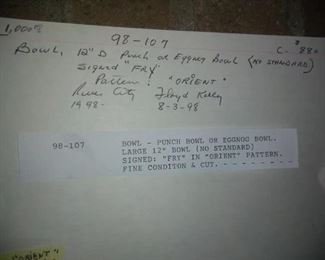 98-107
Bowl, 12" D Punch or Eggnog Bowl (No Standard)
Signed "Fry"
Pattern: "Orient"
River City Floyd Kelly
1998- 8-3-98
98-107 BOWL - PUNCH BOWL OR EGGNOG BOWL.
LARGE 12" BOWL (NO STANDARD)
SIGNED: "FRY" IN "ORIENT" PATTERN.
FINE CONDITON & CUT. - - - - - - - -
"ORIENT"